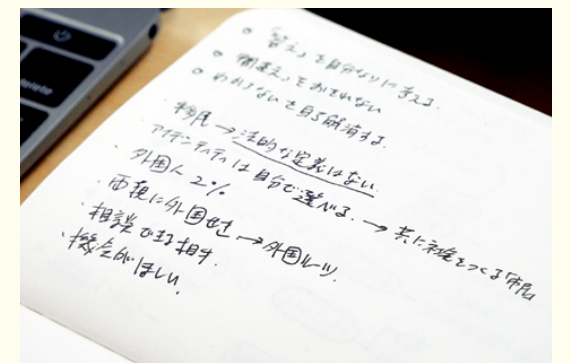 delete
○「答え」を自分なりに考える
○「間違え」をおそれない
○ わからないを自ら解消する.
・移民→法的な定義はない.
・アイデンティティは自分で選べる.→共に社会をつくる「市民」
・外国人 2%
・両親に外国籍→外国ルーツ.
・相談できる相手.
・機会がほしい.